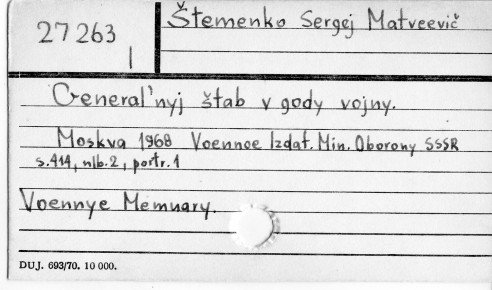 27263
I
Štemenko Sergej Matveevič
General'nyj štab v gody vojny.
Moskva 1968 Voennoe Izdat. Min. Oborony SSSR
s.414, nlb.2, portr.1
Voennye Memuary.
DUJ. 693/70. 10 000.